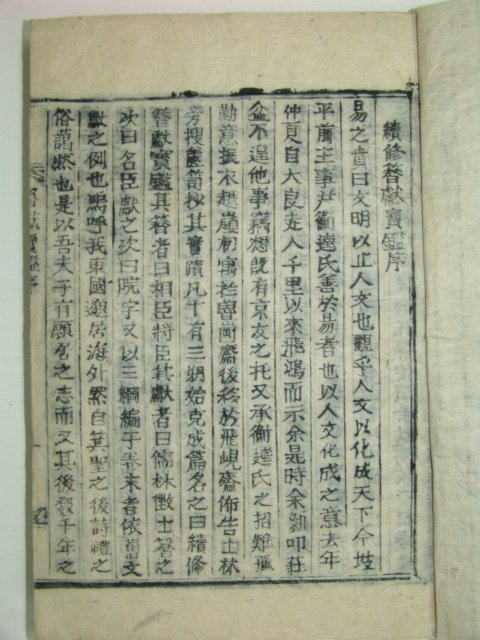 續修簪獻寶鑑序
易之賁曰文明以止人文也觀乎人文以化成天下今坡
平前主事尹衡逵氏善於易者也以人文化成之意去年
仲夏自大良走人千里以來飛鴻而示余是時余勤叩莊
盆不遑他事竊想旣有京友之托又承衡逵氏之招難孤
勤意振衣越嶺初寓於魯岡齋後移於飛峴齋佈告士林
旁搜篋笥抄其實蹟凡十有三朔始克成篇名之曰續修
簪獻寶鑑其簪者曰相臣將臣其獻者曰儒林徵士簪之
次曰名臣獻之次曰院宇又以三綱編于卷末者依前文
獻之例也嗚呼我東國邈居海外然自箕聖之後詩禮之
俗藹然也是以吾夫子有願居之志而又其後數千年之